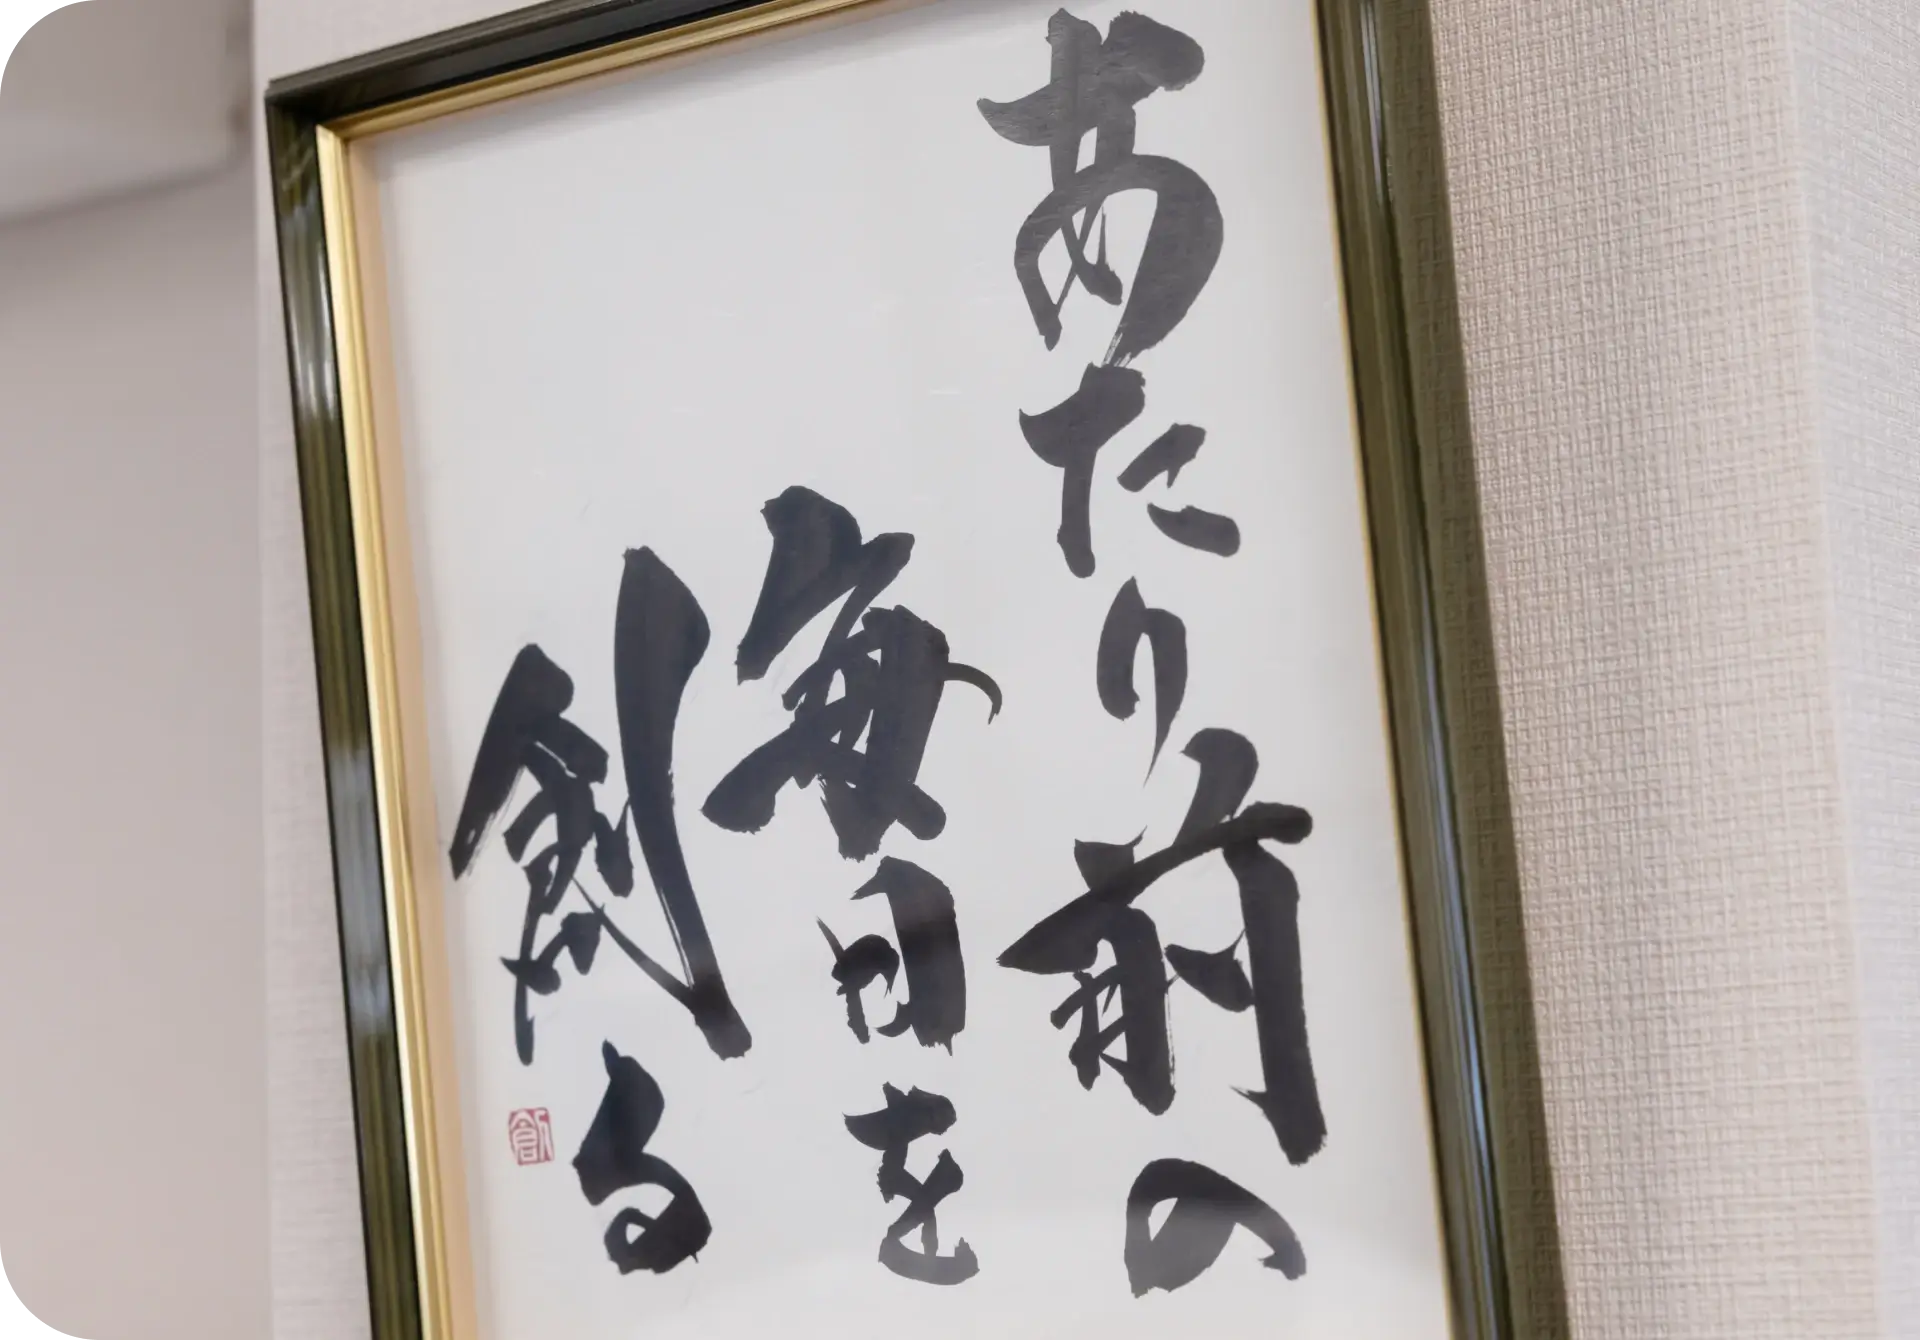 あたり前の
毎日を
創る
創